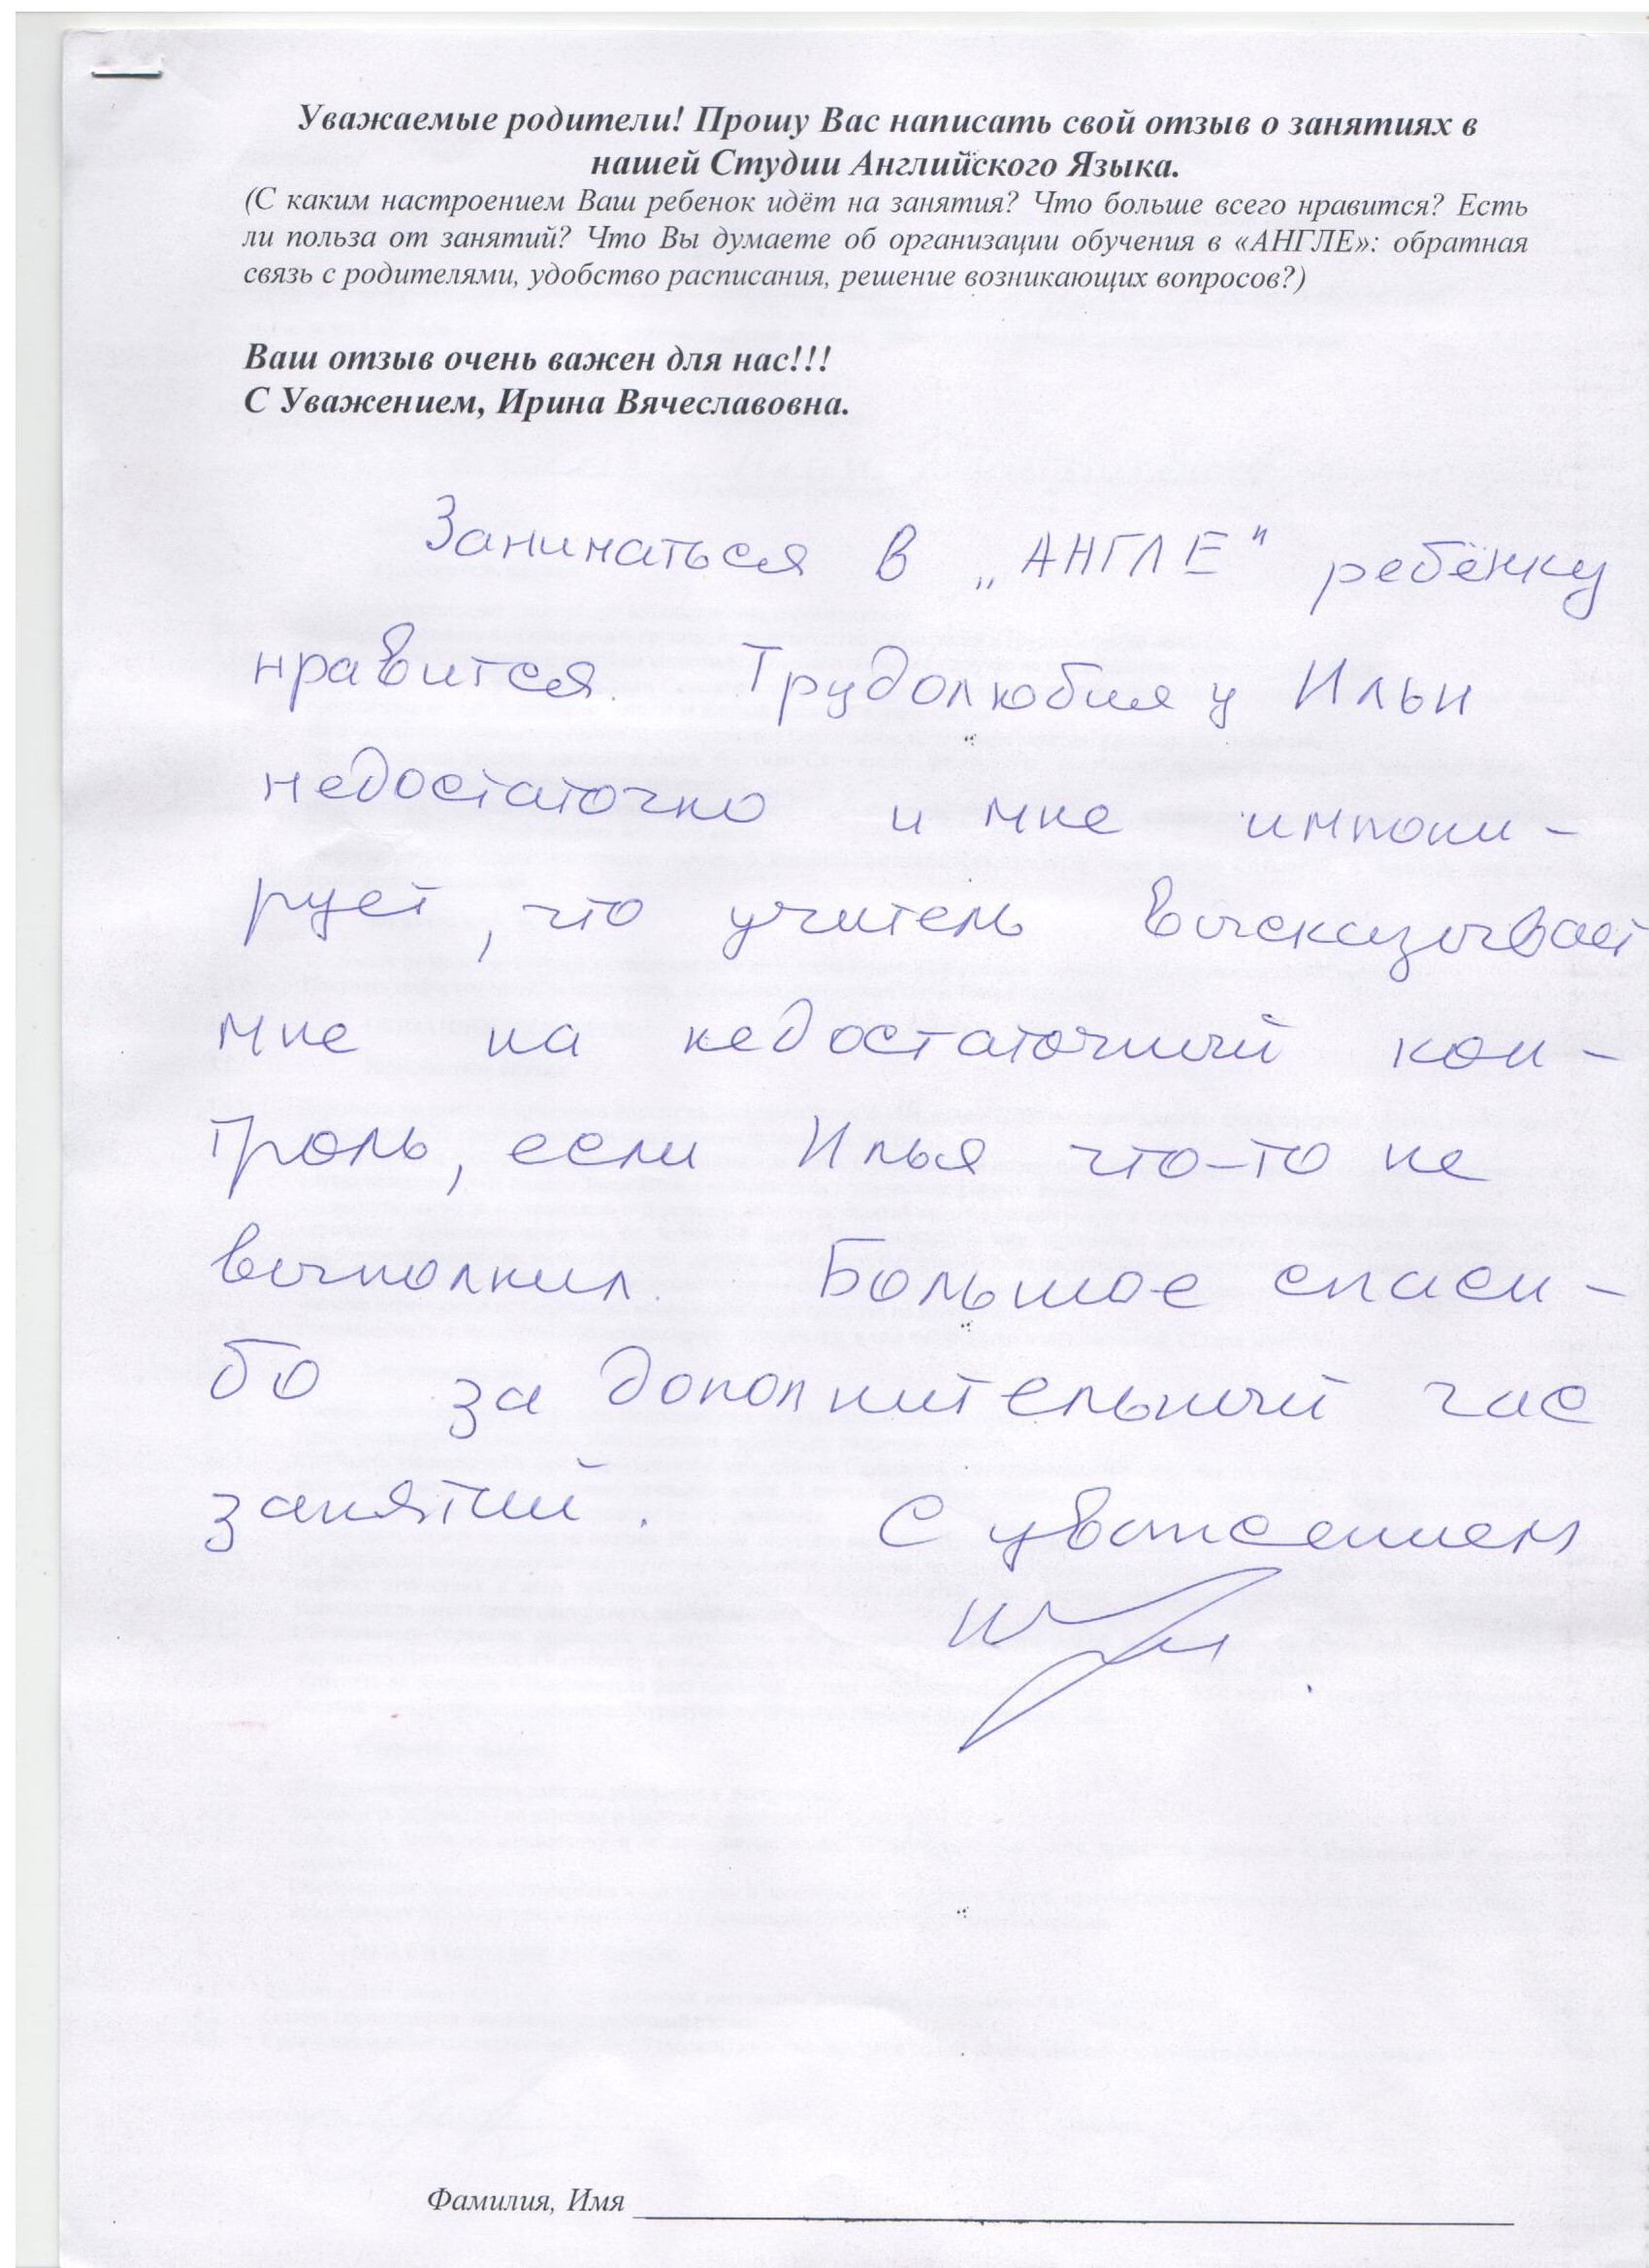 Уважаемые родители! Прошу Вас написать свой отзыв о занятиях в
нашей Студии Английского Языка.
(С каким настроением Ваш ребенок идёт на занятия? Что больше всего нравится? Есть
ли польза от занятий? Что Вы думаете об организации обучения в «АНГЛЕ»: обратная
связь с родителями, удобство расписания, решение возникающих вопросов?)
Ваш отзыв очень важен для нас!!!
С Уважением, Ирина Вячеславовна.
Заниматься в „АНГЛЕ" ребёнку
нравится. Трудолюбия у Ильи
недостаточно и мне импони-
рует, что учитель высказывает
мне на недостаточный кон-
троль, если Илья что-то не
выполнил. Большое спаси-
бо за дополнительный час
занятий. С уважением
Фамилия, Имя